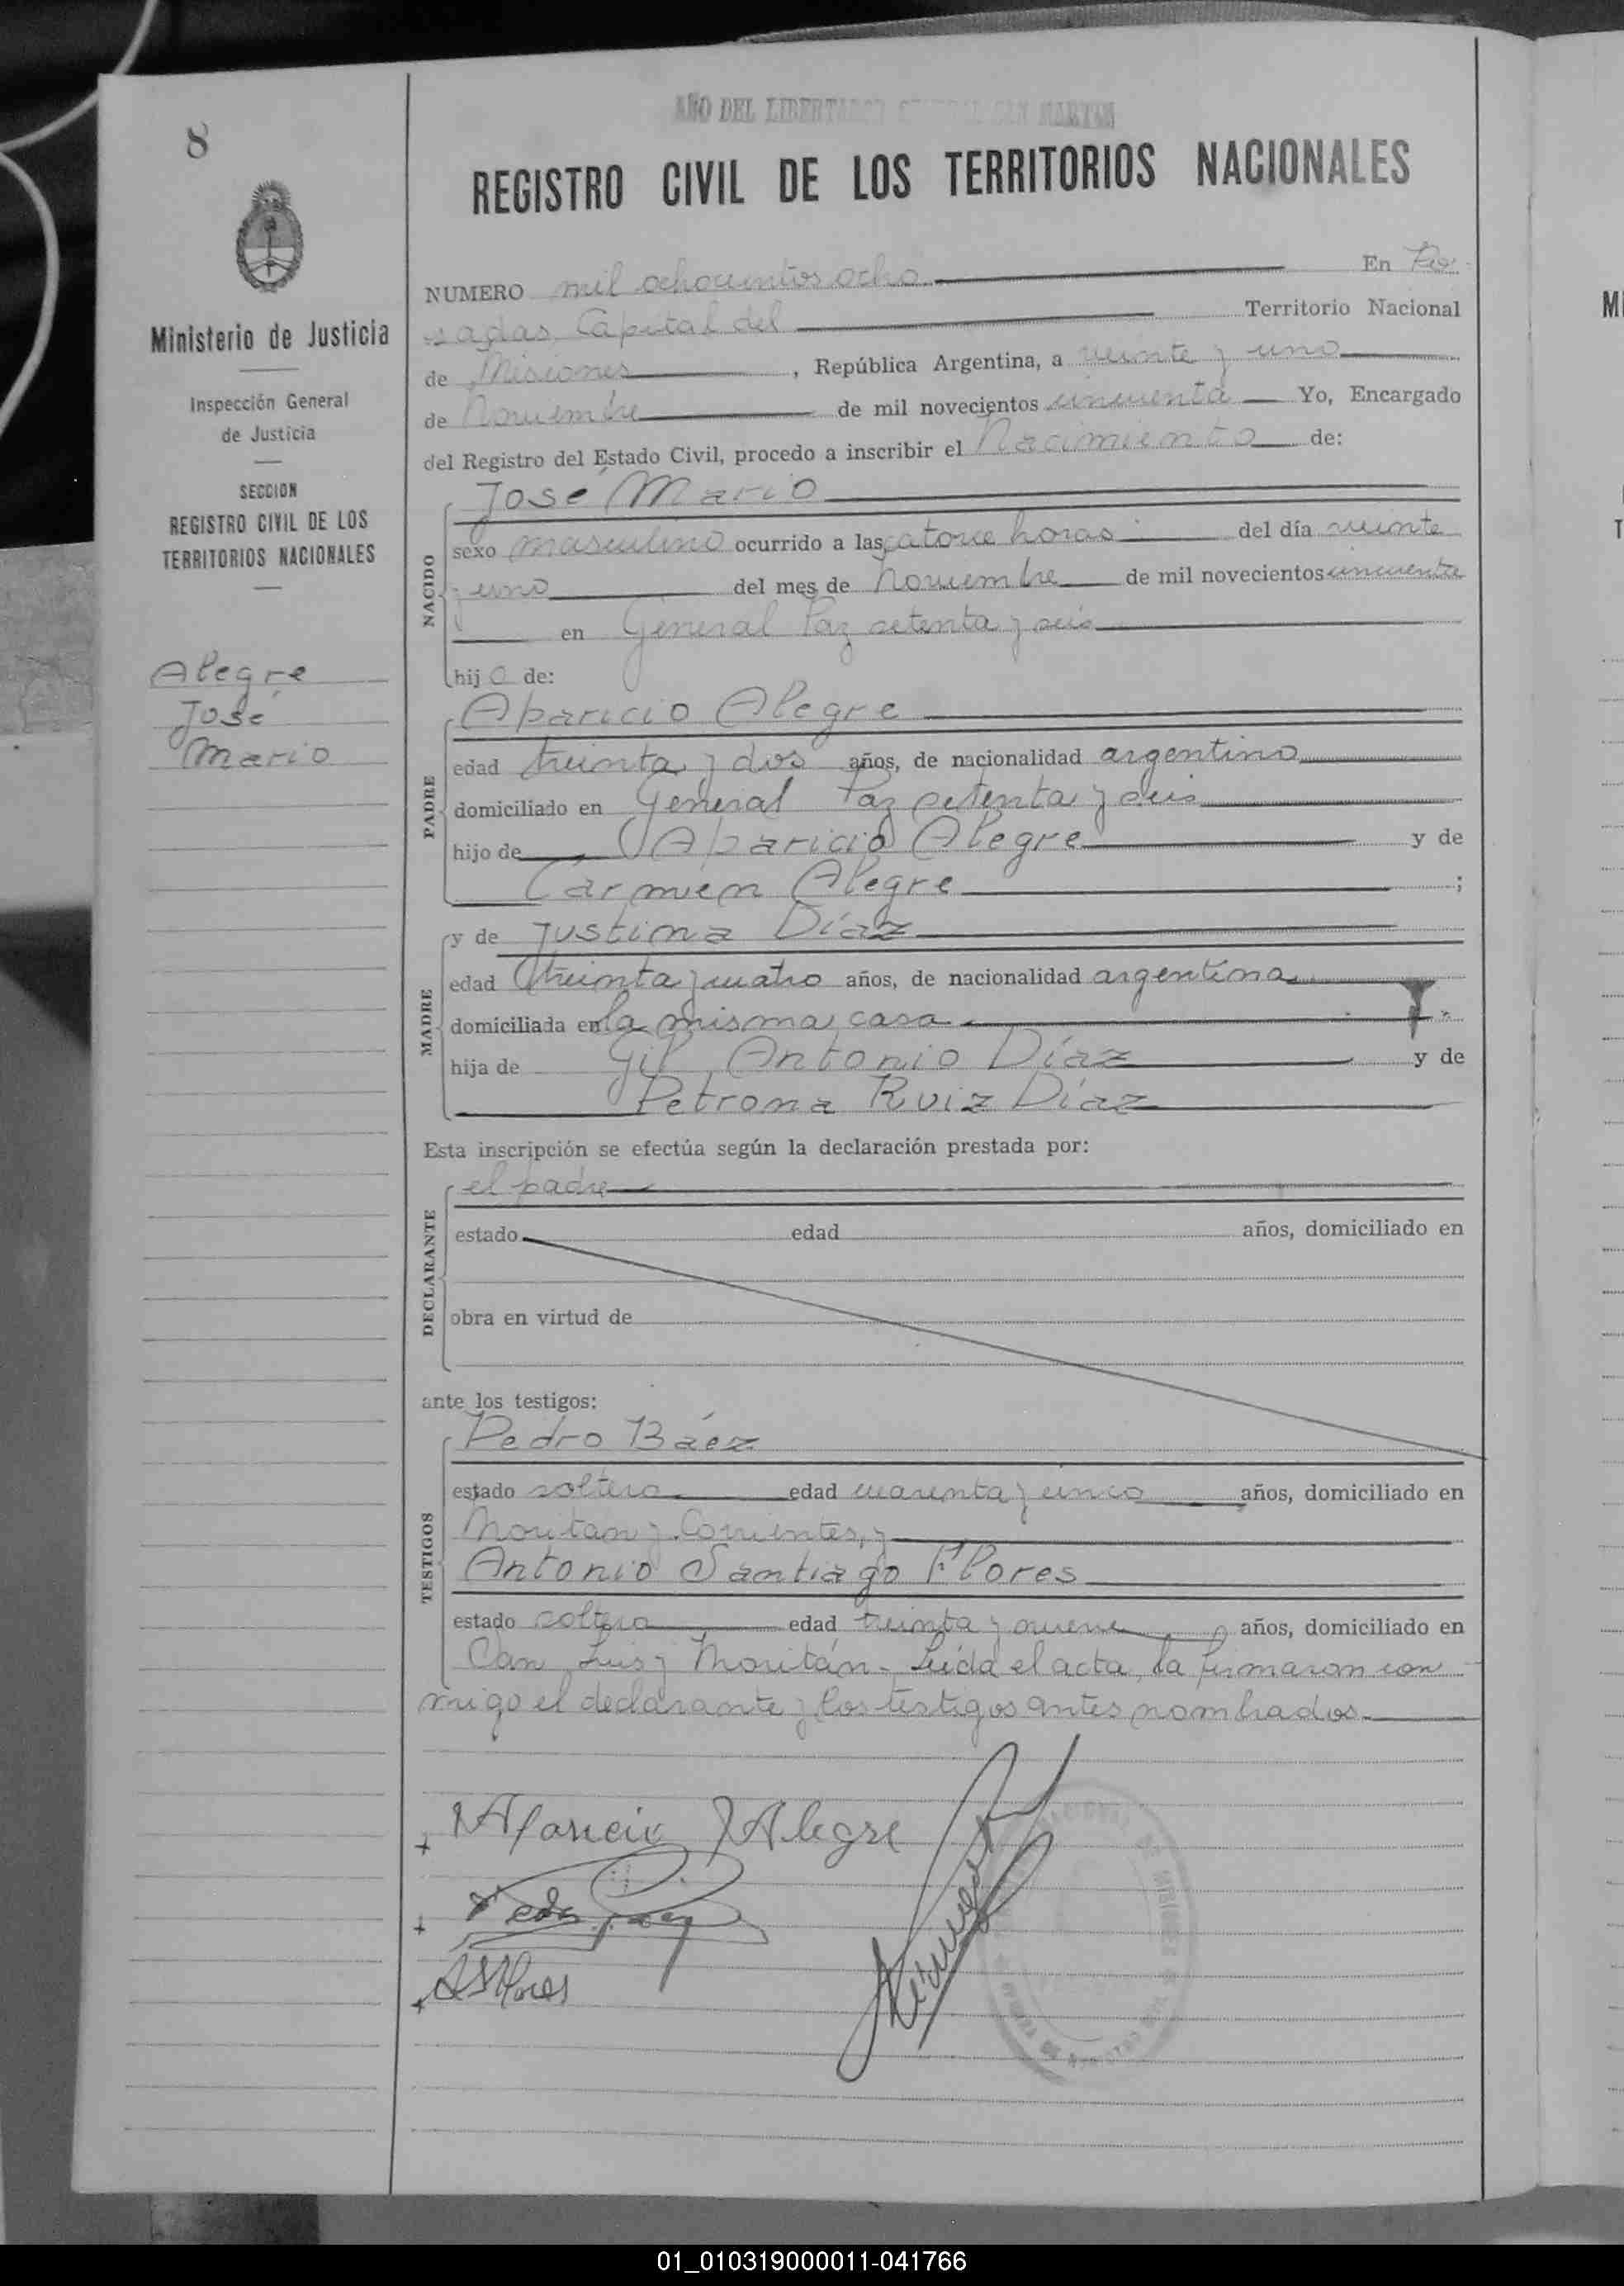 8
Ministerio de Justicia
Inspección General
de Justicia
SECCION
REGISTRO CIVIL DE LOS
TERRITORIOS NACIONALES
Alegre
José
Mario
AÑO DEL LIBERTADOR GENERAL SAN MARTIN
REGISTRO CIVIL DE LOS TERRITORIOS NACIONALES
NUMERO mil ochocientos ocho En Po-
sadas, Capital del Territorio Nacional
de Misiones, República Argentina, a veinte y uno
de Noviembre de mil novecientos cincuenta Yo, Encargado
del Registro del Estado Civil, procedo a inscribir el Nacimiento de:
NACIDO
José Mario
sexo masculino ocurrido a las catorce horas del día veinte
y uno del mes de Noviembre de mil novecientos cincuenta
en General Paz setenta y seis
hijo de:
PADRE
Aparicio Alegre
edad treinta y dos años, de nacionalidad argentino
domiciliado en General Paz setenta y seis
hijo de Aparicio Alegre y de
Carmen Alegre ;
MADRE
y de Justina Díaz
edad treinta y cuatro años, de nacionalidad argentina
domiciliada en la misma casa
hija de Gil Antonio Díaz y de
Petrona Ruiz Díaz
Esta inscripción se efectúa según la declaración prestada por:
DECLARANTE
el padre
estado edad años, domiciliado en
obra en virtud de
ante los testigos:
TESTIGOS
Pedro Báez
estado soltero edad cuarenta y cinco años, domiciliado en
Moritan y Corrientes, y
Antonio Santiago Flores
estado soltero edad treinta y nueve años, domiciliado en
San Luis y Moritán. Leída el acta, la firmaron con
migo el declarante y los testigos antes nombrados.
Aparicio Alegre
Pedro Baez
ASFlores
01_010319000011-041766